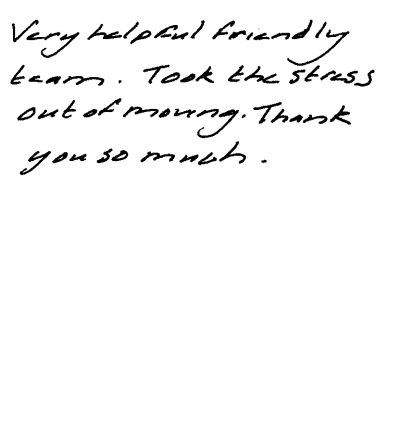 Very helpful friendly
team. Took the stress
out of moving. Thank
you so much.